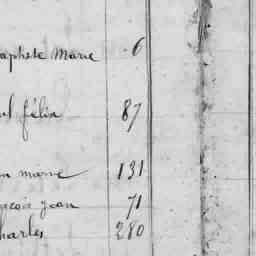 aphste Marie 6
félix 87
marie 131
jean 71
harles 280